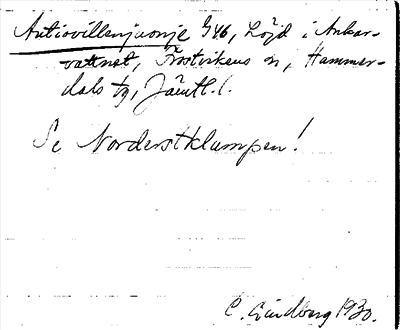 Antiovillenjuonje G46, Löjd i Ankar-
vattnet, Frostvikens sn, Hammer-
dals tg, Jämtl. l.
Se Norderstklumpen!
C. Lindberg 1930.